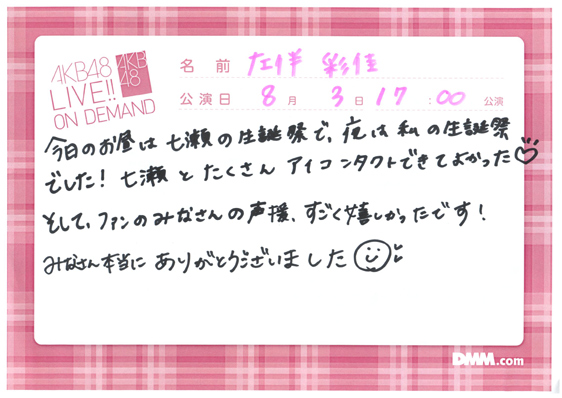 AKB48
LIVE!!
ON DEMAND
AKB
48
名前 左伴 彩佳
公演日 8月 3日 17:00 公演
今日のお昼は七瀬の生誕祭で、夜は私の生誕祭
でした！七瀬とたくさんアイコンタクトできてよかった♡
そして、ファンのみなさんの声援、すごく嬉しかったです！
みなさん本当にありがとうございました
DMM.com